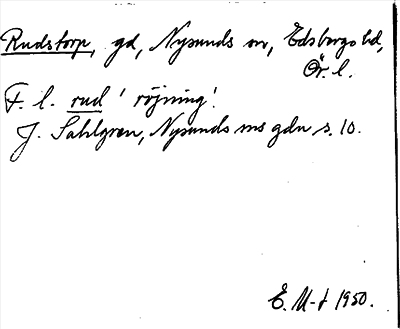 Rudstorp, gd, Nysunds sn, Edsbergs hd,
Ör. l.
F. l. rud 'röjning'.
J. Sahlgren, Nysunds sns gdn s. 10.
E. M-t 1950.